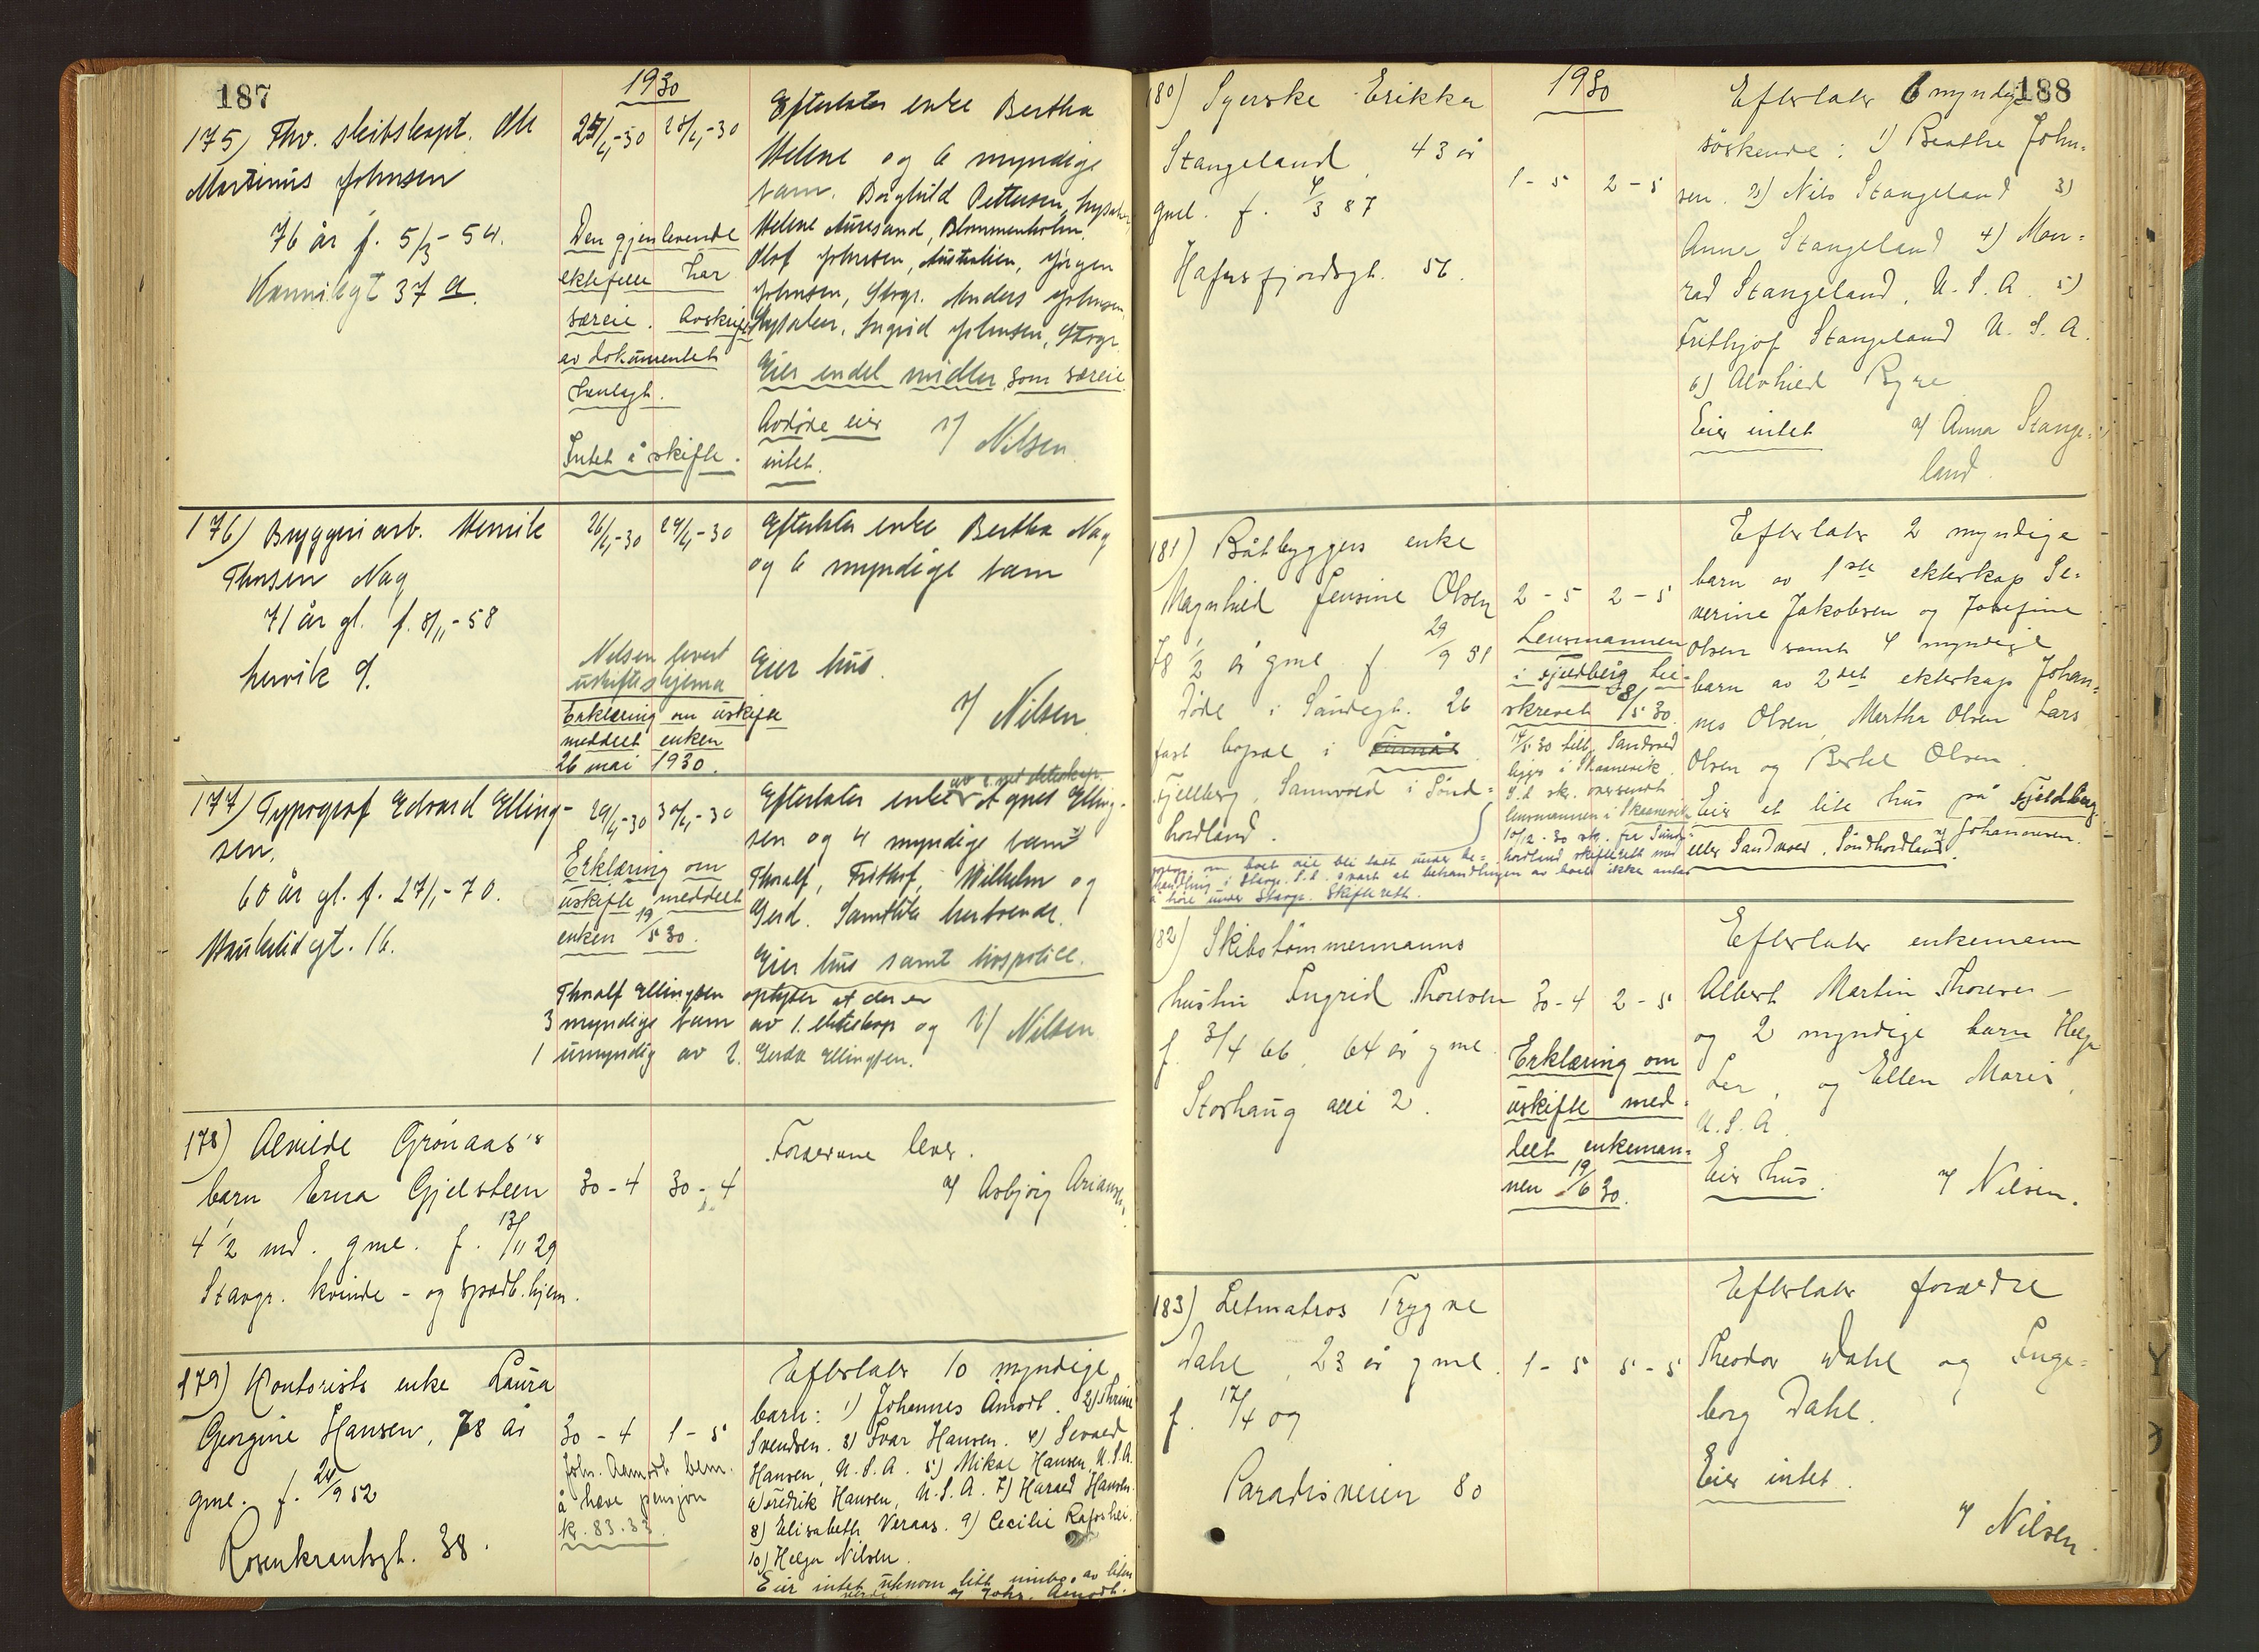 187
1930
175) Fhv. skibskapt. Ole
Martinus Johnsen
76 år f. 5/3 - 54.
Kannikgt 37 a.
25/4-30 28/4-30
Den gjenlevende
ektefelle har
særeie. Avskrift
av dokumentet
henlagt.
Intet å skifte.
Efterlater enke Bertha
Helene og 6 myndige
barn. Borghild Pettersen, Lysaker,
Helene Auresand, Blommenholm,
Olof Johnsen, Australien, Jørgen
Johnsen, Stvgr. Anders Johnsen,
Lysaker, Ingrid Johnsen, Stvgr.
Eier endel midler som særeie
Avdøde eier
intet.
v/ Nilsen
176) Bryggeriarb. Henrik
Thorsen Nag
71 år gl. f. 8/11-58
Lervik 9.
26/4-30 29/4-30
Nilsen levert
uskifteskjema
Erklæring om uskifte
meddelt enken
26 mai 1930.
Efterlater enke Bertha Nag
og 6 myndige barn
Eier hus.
v/ Nilsen
177) Typograf Edvard Elling-
sen.
60 år gl. f. 27/1-70.
Haukelidgt. 16.
29/4-30 30/4-30
Erklæring om
uskifte meddelt
enken 19/5 30.
av 2net ekteskap.
Efterlater enke Agnes Elling-
sen og 4 myndige barn
Thoralf, Frithof, Wilhelm og
Gerd. Samtlige herboende.
Eier hus samt livspolice.
Thoralf Ellingsen oplyser at der er
3 myndige barn av 1. ekteskap og
1 umyndig av 2. Gerda Ellingsen.
v/ Nilsen
178) Alvilde Grønaas's
barn Erna Gjelsteen
4 1/2 md. gml. f. 13/11 29
Stavgr. kvinde - og spædb.hjem.
30-4 30-4
Forældrene lever.
v/ Asbjørg
179) Kontorists enke Laura
Georgine Hansen, 78 år
gml. f. 24/9 52
Rosenkrantzgt. 38.
30 - 4 1 - 5
Joh. Aamodt bem.
å heve pensjon
kr. 83.33.
Efterlater 10 myndige
barn: 1) Johannes Amodt. 2) Thrine
Svendsen. 3) Ivar Hansen. 4) Sevald
Hansen, U.S.A. 5) Mikal Hansen, U.S.A.
6) Fredrik Hansen, U.S.A. 7) Harald Hansen.
8) Elisabeth Veraas. 9) Cecilie Rafoshei.
10) Helga Nilsen.
Eier intet utenom litt innbo av liten
verdi. v/ Johs. Amodt.
188
1930
180) Syerske Erikka
Stangeland, 43 år
gml. f. 4/3 87
Hafrsfjordsgt. 56.
1 - 5 2 - 5
Efterlater 6 myndige
søskende: 1) Beathe John-
sen. 2) Nils Stangeland 3)
Anna Stangeland 4) Mon-
rad Stangeland, U.S.A. 5)
Frithjof Stangeland U.S.A.
6) Alvhild Rygre
Eier intet
v/ Anna Stange-
land.
181) Båtbyggers enke
Magnhild Jensine Olsen
78 1/2 år gml f. 29/9 51
Døde i Sandsgt. 26
fast bopæl i
Fjellberg, Sannvold i Sønd-
hordland.
2 - 5 2 - 5
Lensmannen
i Fjeldberg til-
skrevet 8/5 30.
14/5 30 Lille Sandvold
ligger i Skaanevik.
S.d. skr. oversendt
lensmannen i Skaanevik
10/12-30 skr. fra Sund-
hordland skifterett med
spørs. om boet vil bli tatt under be-
handling i Stavgr. S.d. svart at behandlingen av boet ikke antas
å høre under Stavgr. Skifterett.
Efterlater 2 myndige
barn av 1ste ekteskap Se-
verine Jakobsen og Josefine
Olsen samt 4 myndige
barn av 2det ekteskap Johan-
nes Olsen, Martha Olsen Lars
Olsen og Bertel Olsen.
Eier et lite hus på Fjeldberg
eller Sandvold, Søndhordland.
v/ Johannesen.
182) Skibstømmermanns
hustru Ingrid Thoresen
f. 3/4 66, 64 år gml
Storhaug alle 2.
30-4 2 - 5
Erklæring om
uskifte med-
delt enkeman-
nen 19/6 30.
Efterlater enkemann
Albert Martin Thoresen
og 2 myndige barn Helga
Lea, og Ellen Marie,
U.S.A.
Eier hus.
v/ Nilsen.
183) Letmatros Trygve
Dahl, 23 år gml.
f. 17/4 07
Paradisveien 80
1 - 5 5 - 5
Efterlater forældre
Theodor Dahl og Inge-
borg Dahl.
Eier intet.
v/ Nilsen.